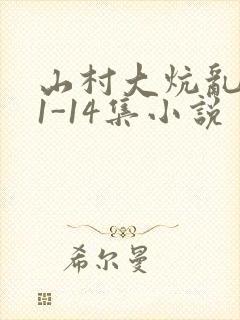 山村大炕乱
1-14集小说
希尔曼